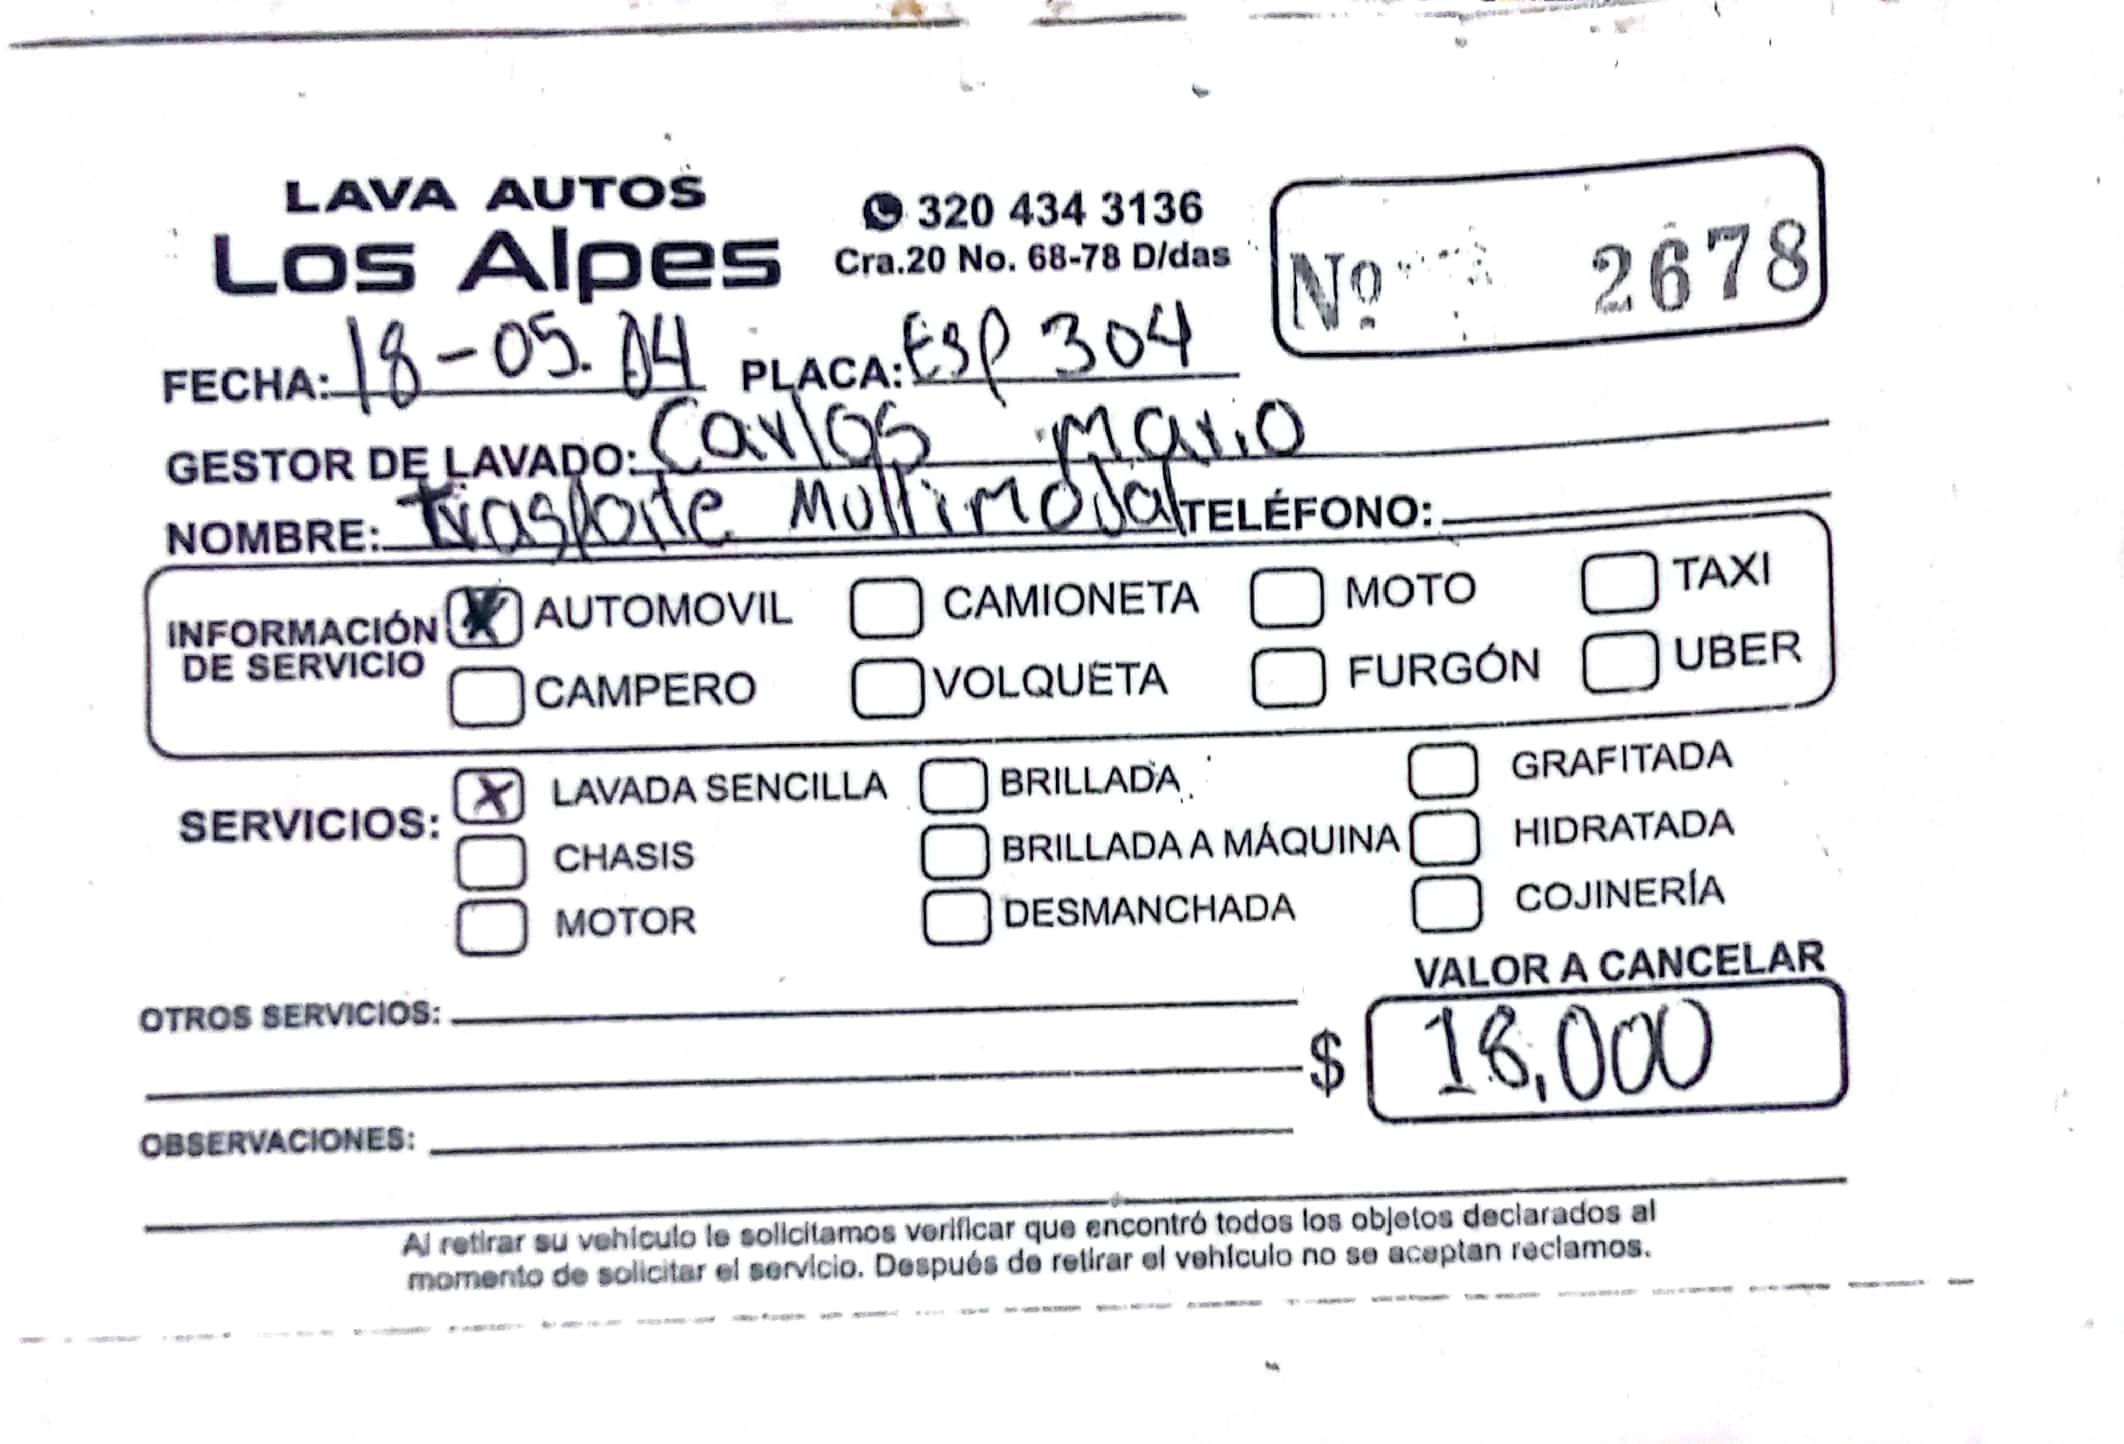 LAVA AUTOS
Los Alpes
320 434 3136
Cra.20 No. 68-78 D/das
Nº 2678
FECHA: 18-05.04 PLACA: ESP 304
GESTOR DE LAVADO: Carlos Mario
NOMBRE: trasporte Multimodal TELÉFONO:
INFORMACIÓN DE SERVICIO
X AUTOMOVIL CAMIONETA MOTO TAXI
CAMPERO VOLQUETA FURGÓN UBER
SERVICIOS: X LAVADA SENCILLA BRILLADA GRAFITADA
CHASIS BRILLADA A MÁQUINA HIDRATADA
MOTOR DESMANCHADA COJINERÍA
VALOR A CANCELAR
OTROS SERVICIOS:
$ 18,000
OBSERVACIONES:
Al retirar su vehículo le solicitamos verificar que encontró todos los objetos declarados al
momento de solicitar el servicio. Después de retirar el vehículo no se aceptan reclamos.